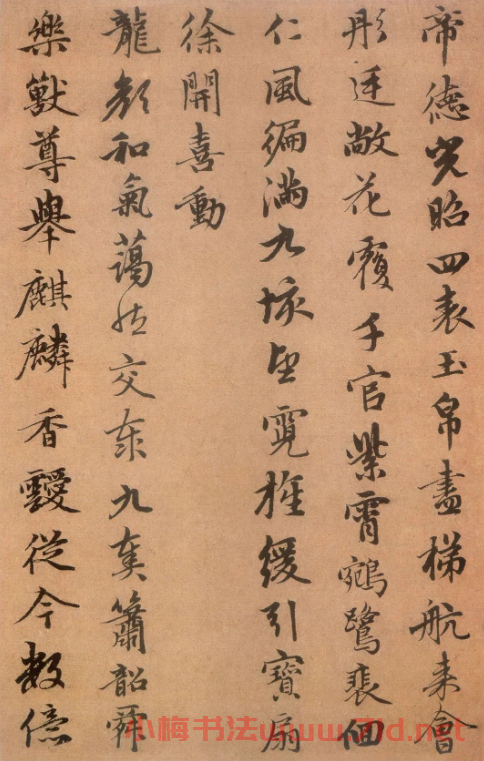 帝德光昭四表玉帛盡梯航来會
彤廷敞花覆千官紫霄鵷鷺裴佪
仁風徧滿九垓望霓旌緩引寶扇
徐開喜動
龍顏和氣藹然交泰九奏簫韶舜
樂獸尊舉麒麟香靉從今數億
小梅书法